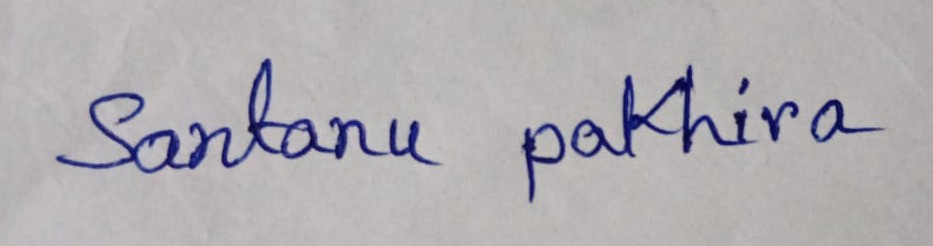 Santanu pakhira